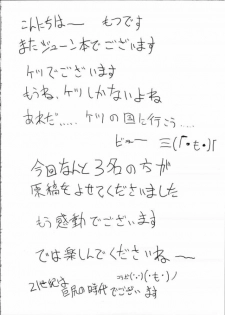 こんにちは〜 もつです
またジューン本でございます
ケツでございます
もうね、ケツしかないよね
あれだ..... ケツの国に行こう....
ビュー 三(「・も・)「
今回なんと3名の方が
原稿をよせてくださいました
もう感動でございます
では楽しんでくださいね〜
21世紀は
巨尻の時代でございます
(・も・)ノ